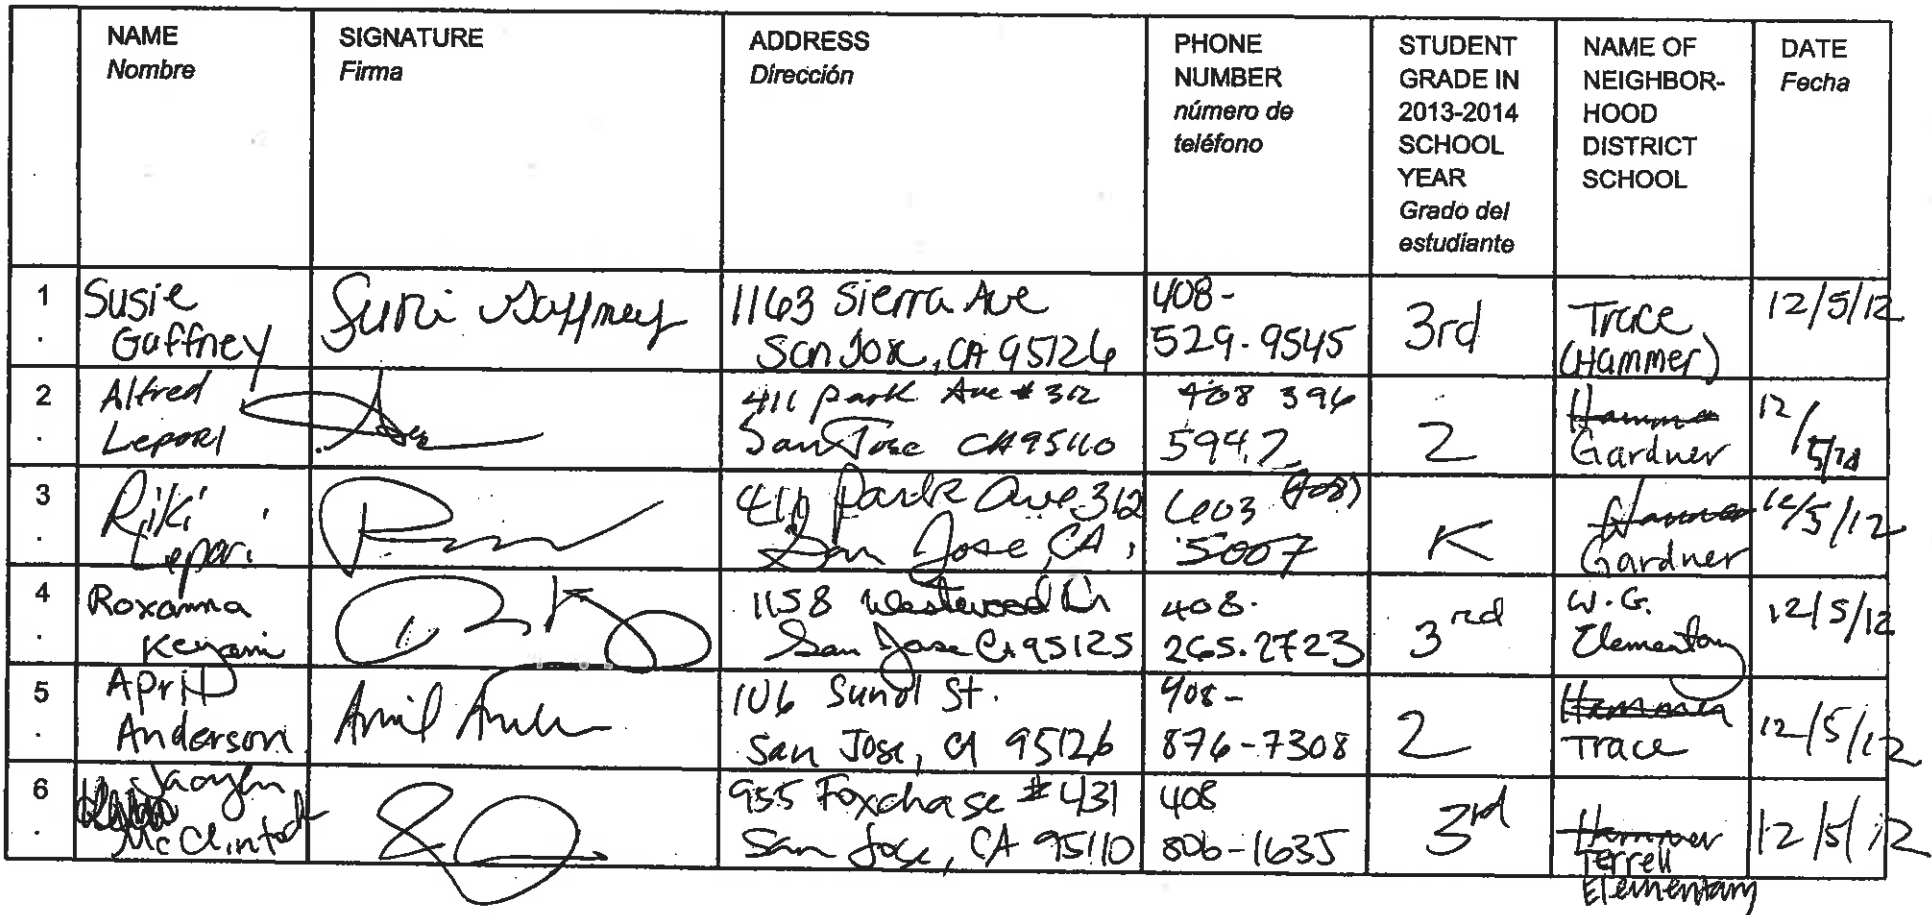 NAME
Nombre
SIGNATURE
Firma
ADDRESS
Dirección
PHONE
NUMBER
número de
teléfono
STUDENT
GRADE IN
2013-2014
SCHOOL
YEAR
Grado del
estudiante
NAME OF
NEIGHBOR-
HOOD
DISTRICT
SCHOOL
DATE
Fecha
1.
Susie
Gaffney
Susie Gaffney
1163 Sierra Ave
San Jose, CA 95126
408-
529-9545
3rd
Trace
(Hammer)
12/5/12
2.
Alfred
Lepori
411 Park Ave # 312
San Jose CA 95110
408 396
5947
2
Gardner
12/
3.
Riki
Lepori
411 Park Ave 312
San Jose, CA
603 (408)
5007
K
Gardner
12/5/12
4.
Roxanna
1158 Westwood Dr
San Jose Ca 95125
408.
265.2723
3rd
W.G.
Elementary
12/5/12
5.
April
Anderson
106 Sunol St.
San Jose, CA 95126
408-
876-7308
2
Hammer
Trace
12/5/12
6.
McClintock
955 Foxchase #431
San Jose, CA 95110
408
806-1635
3rd
Hammer
Terrell
Elementary
12/5/12